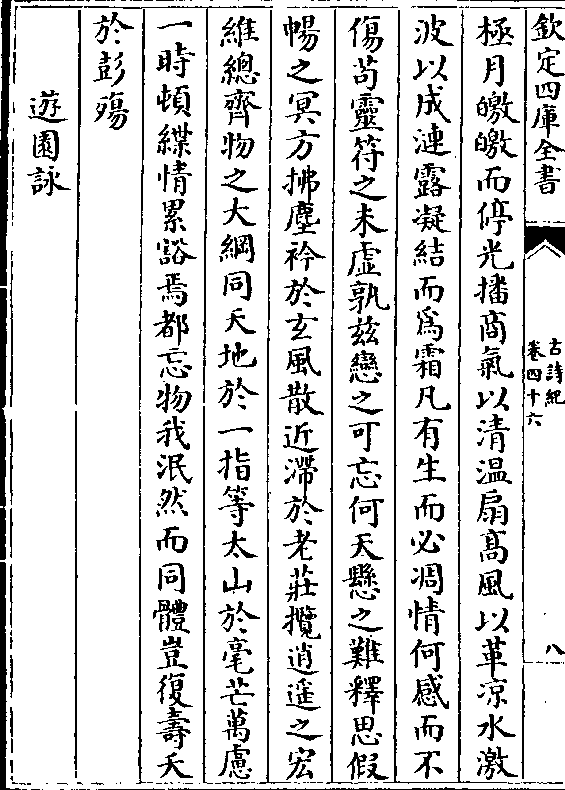 欽定四庫全書
古詩紀
卷四十六
八
極月皦皦而停光播商氣以清温扇髙風以革凉水激
波以成漣露凝結而為霜凡有生而必凋情何感而不
傷茍靈符之未虚孰兹戀之可忘何天懸之難釋思假
暢之冥方拂塵衿於𤣥風散近滯於老莊攬逍遥之宏
維總齊物之大綱同天地於一指等太山於毫芒萬慮
一時頓緤情累豁焉都忘物我泯然而同體豈復壽夭
於彭殤
遊園詠